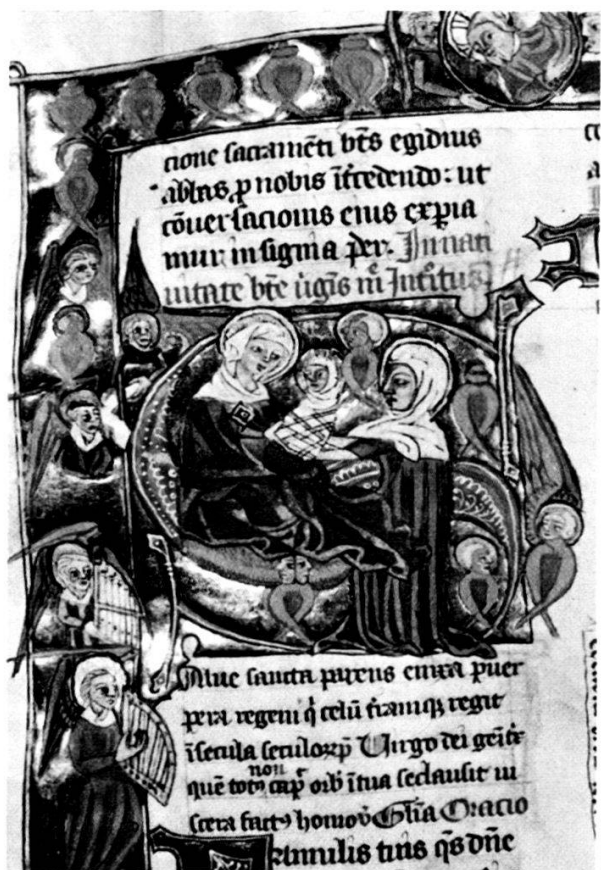 cione sacramēti bt̄s egidius
ablas, ꝑ nobis īt̄cedendo: ut
cōuersacionis eius expia
mur insignia per. In nati
uitate bt̄e uigis Introitus
Salue sancta parens enixa puer
pera regem q̇ celū t̄ramqꝫ regit
ī secula seculoꝝ Uirgo dei geīt
quē totꝰ non cap̄ orb̄ ī tua se clausit ui
scera factꝰ homo Gl̄ia Oracio
Famulis tuis qs̄ dn̄e